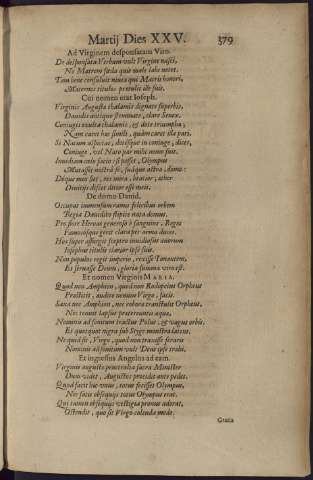 Martij Dies XXV. 379
Ad Virginem desponsatam Viro.
De desponsata Verbum vult Virgine nasci,
Ne Matrem fœda quis male labe notet.
Tam bene consuluit nivea qui Matris honori,
Maternis titulis prætulit ille suis.
Cui nomen erat Ioseph.
Virginis Augusta thalamis dignate superbis,
Davidis antiquæ germinate, clare Senex.
Coniugij exulta thalamis, & dote triumpha;
Nam caret hac similis, quàm caret illa pari.
Si Natum aspectas, ditésque in coniuge, dices,
Coniuge, vel Nato par mihi nemo fuit.
Invidiam cœlo facis: si posset, Olympus
Mutasset mistrâ se, suáque astra, domo:
Déque meo stat, nec mora, beatur; æther
Divitijs disset ditior esse meis.
De domo David.
Occupat immensum ramis felicibus orbem
Regia Davidica stipitis nata domus.
Pro foret Heroas generosa è sanguine, Reges
Famosósque gerit clara per arma duces.
Hos super assurgit sceptro invidiosus avorum
Iosephus titulis clarior ipse suis.
Non populos regit imperio, rexisse Tonantem,
Et servasse Deum, gloria summa viri est.
Et nomen Virginis MARIA.
Quod non Amphion, quod non Rodopeius Orpheus
Præstitit, audito nomine Virgo, facis.
Saxa nec Amphion, nec robora transtulit Orpheus,
Nec tenuit lapsus prætereuntis aquæ,
Nominis ad sonitum tractus Polus, & vagus orbis,
Et quæcquæ nigra sub Styge monstra latent.
Ne quid sit, Virgo, quod non traxisse feraris
Nominis ad sonitum vult Deus ipse trahi.
Et ingressus Angelus ad eam.
Virginis augusta penetralia sacra Minister
Dum videt, Augustos procidit ante pedes.
Quod facit huc unus, totus fecisset Olympus,
Nec satis obsequijs totus Olympus erat.
Qui tamen obsequijs vestigia pronus adorat,
Ostendit, quo sit Virgo colenda modo.
Gratia